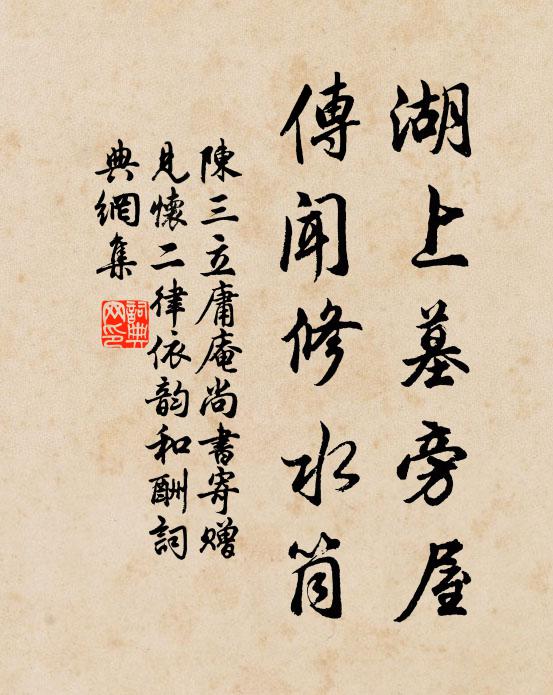 湖上墓旁屋
傳聞修水筒
陳三立庸庵尚書寄贈
見懷二律依韵和酬詞
典網集
詞典網印